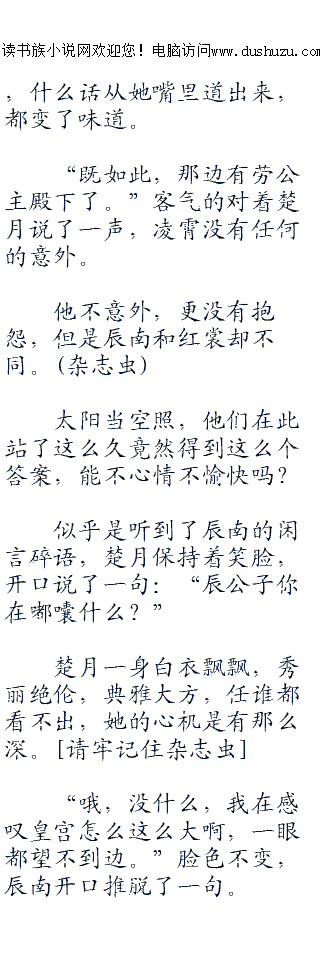 读书族小说网欢迎您！电脑访问www.dushuzu.com
，什么话从她嘴里道出来，
都变了味道。
“既如此，那边有劳公
主殿下了。”客气的对着楚
月说了一声，凌霄没有任何
的意外。
他不意外，更没有抱
怨，但是辰南和红裳却不
同。(杂志虫)
太阳当空照，他们在此
站了这么久竟然得到这么个
答案，能不心情不愉快吗？
似乎是听到了辰南的闲
言碎语，楚月保持着笑脸，
开口说了一句：“辰公子你
在嘟囔什么？”
楚月一身白衣飘飘，秀
丽绝伦，典雅大方，任谁都
看不出，她的心机是有那么
深。[请牢记住杂志虫]
“哦，没什么，我在感
叹皇宫怎么这么大啊，一眼
都望不到边。”脸色不变，
辰南开口推脱了一句。